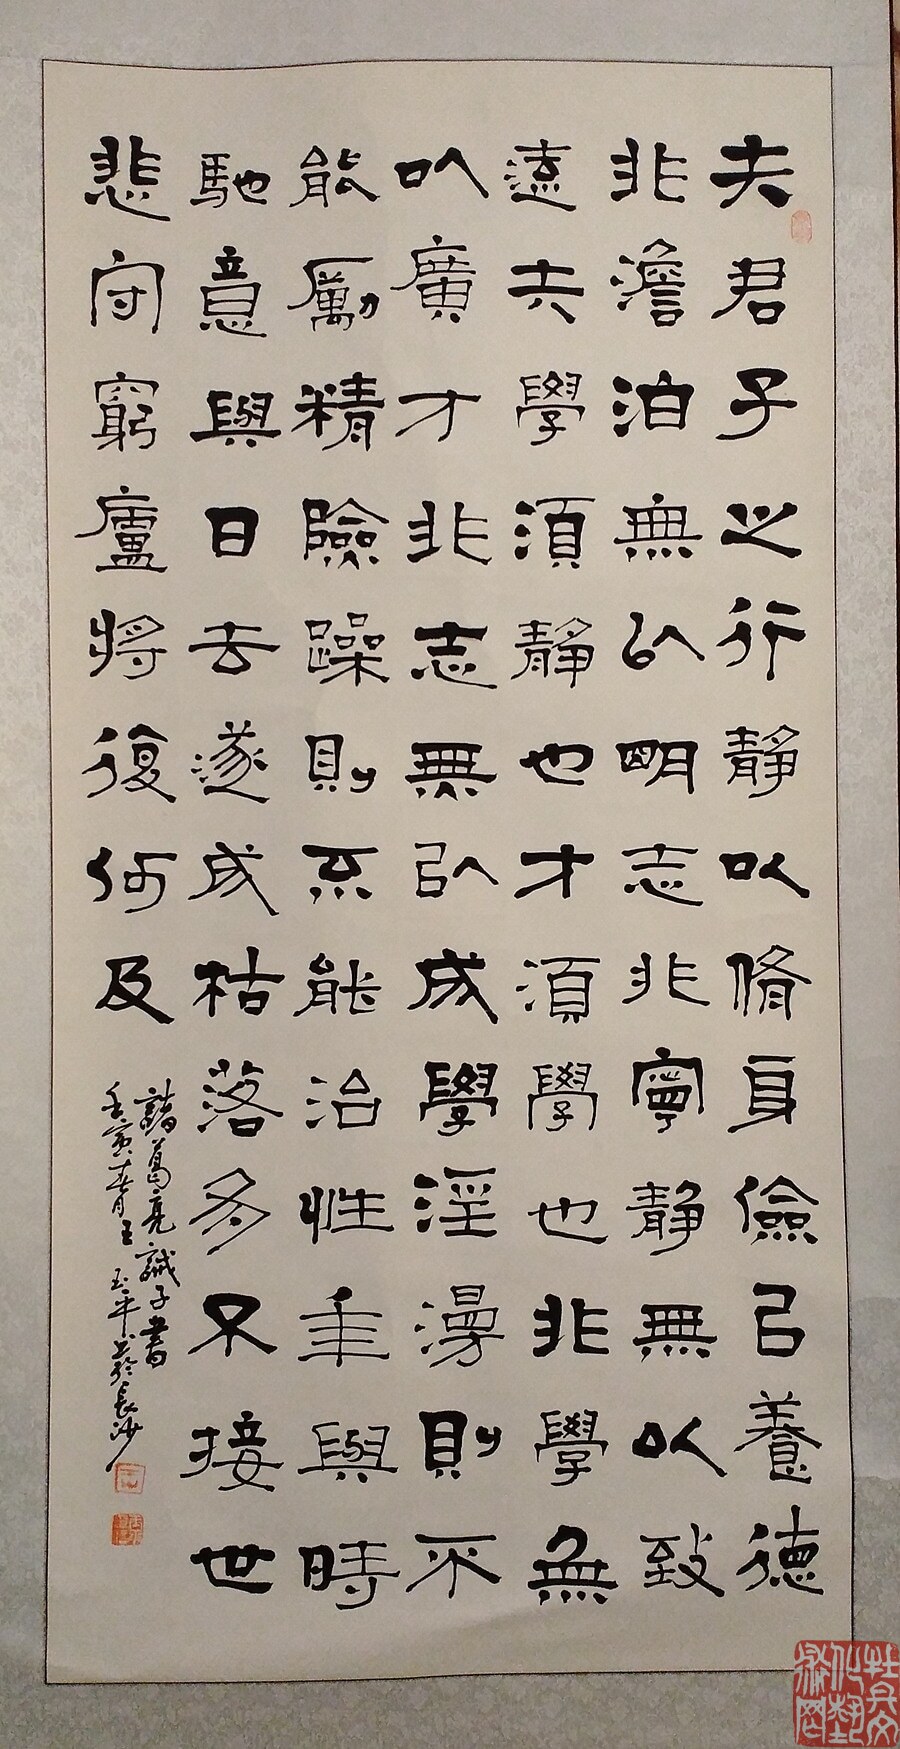 夫君子之行靜以脩身儉以養德
非澹泊無以明志非寧靜無以致
遠夫學須靜也才須學也非學無
以廣才非志無以成學淫漫則不
能勵精險躁則不能治性年與時
馳意與日去遂成枯落多不接世
悲守窮廬將復何及
諸葛亮誡子書
壬寅春月王玉平書於長沙